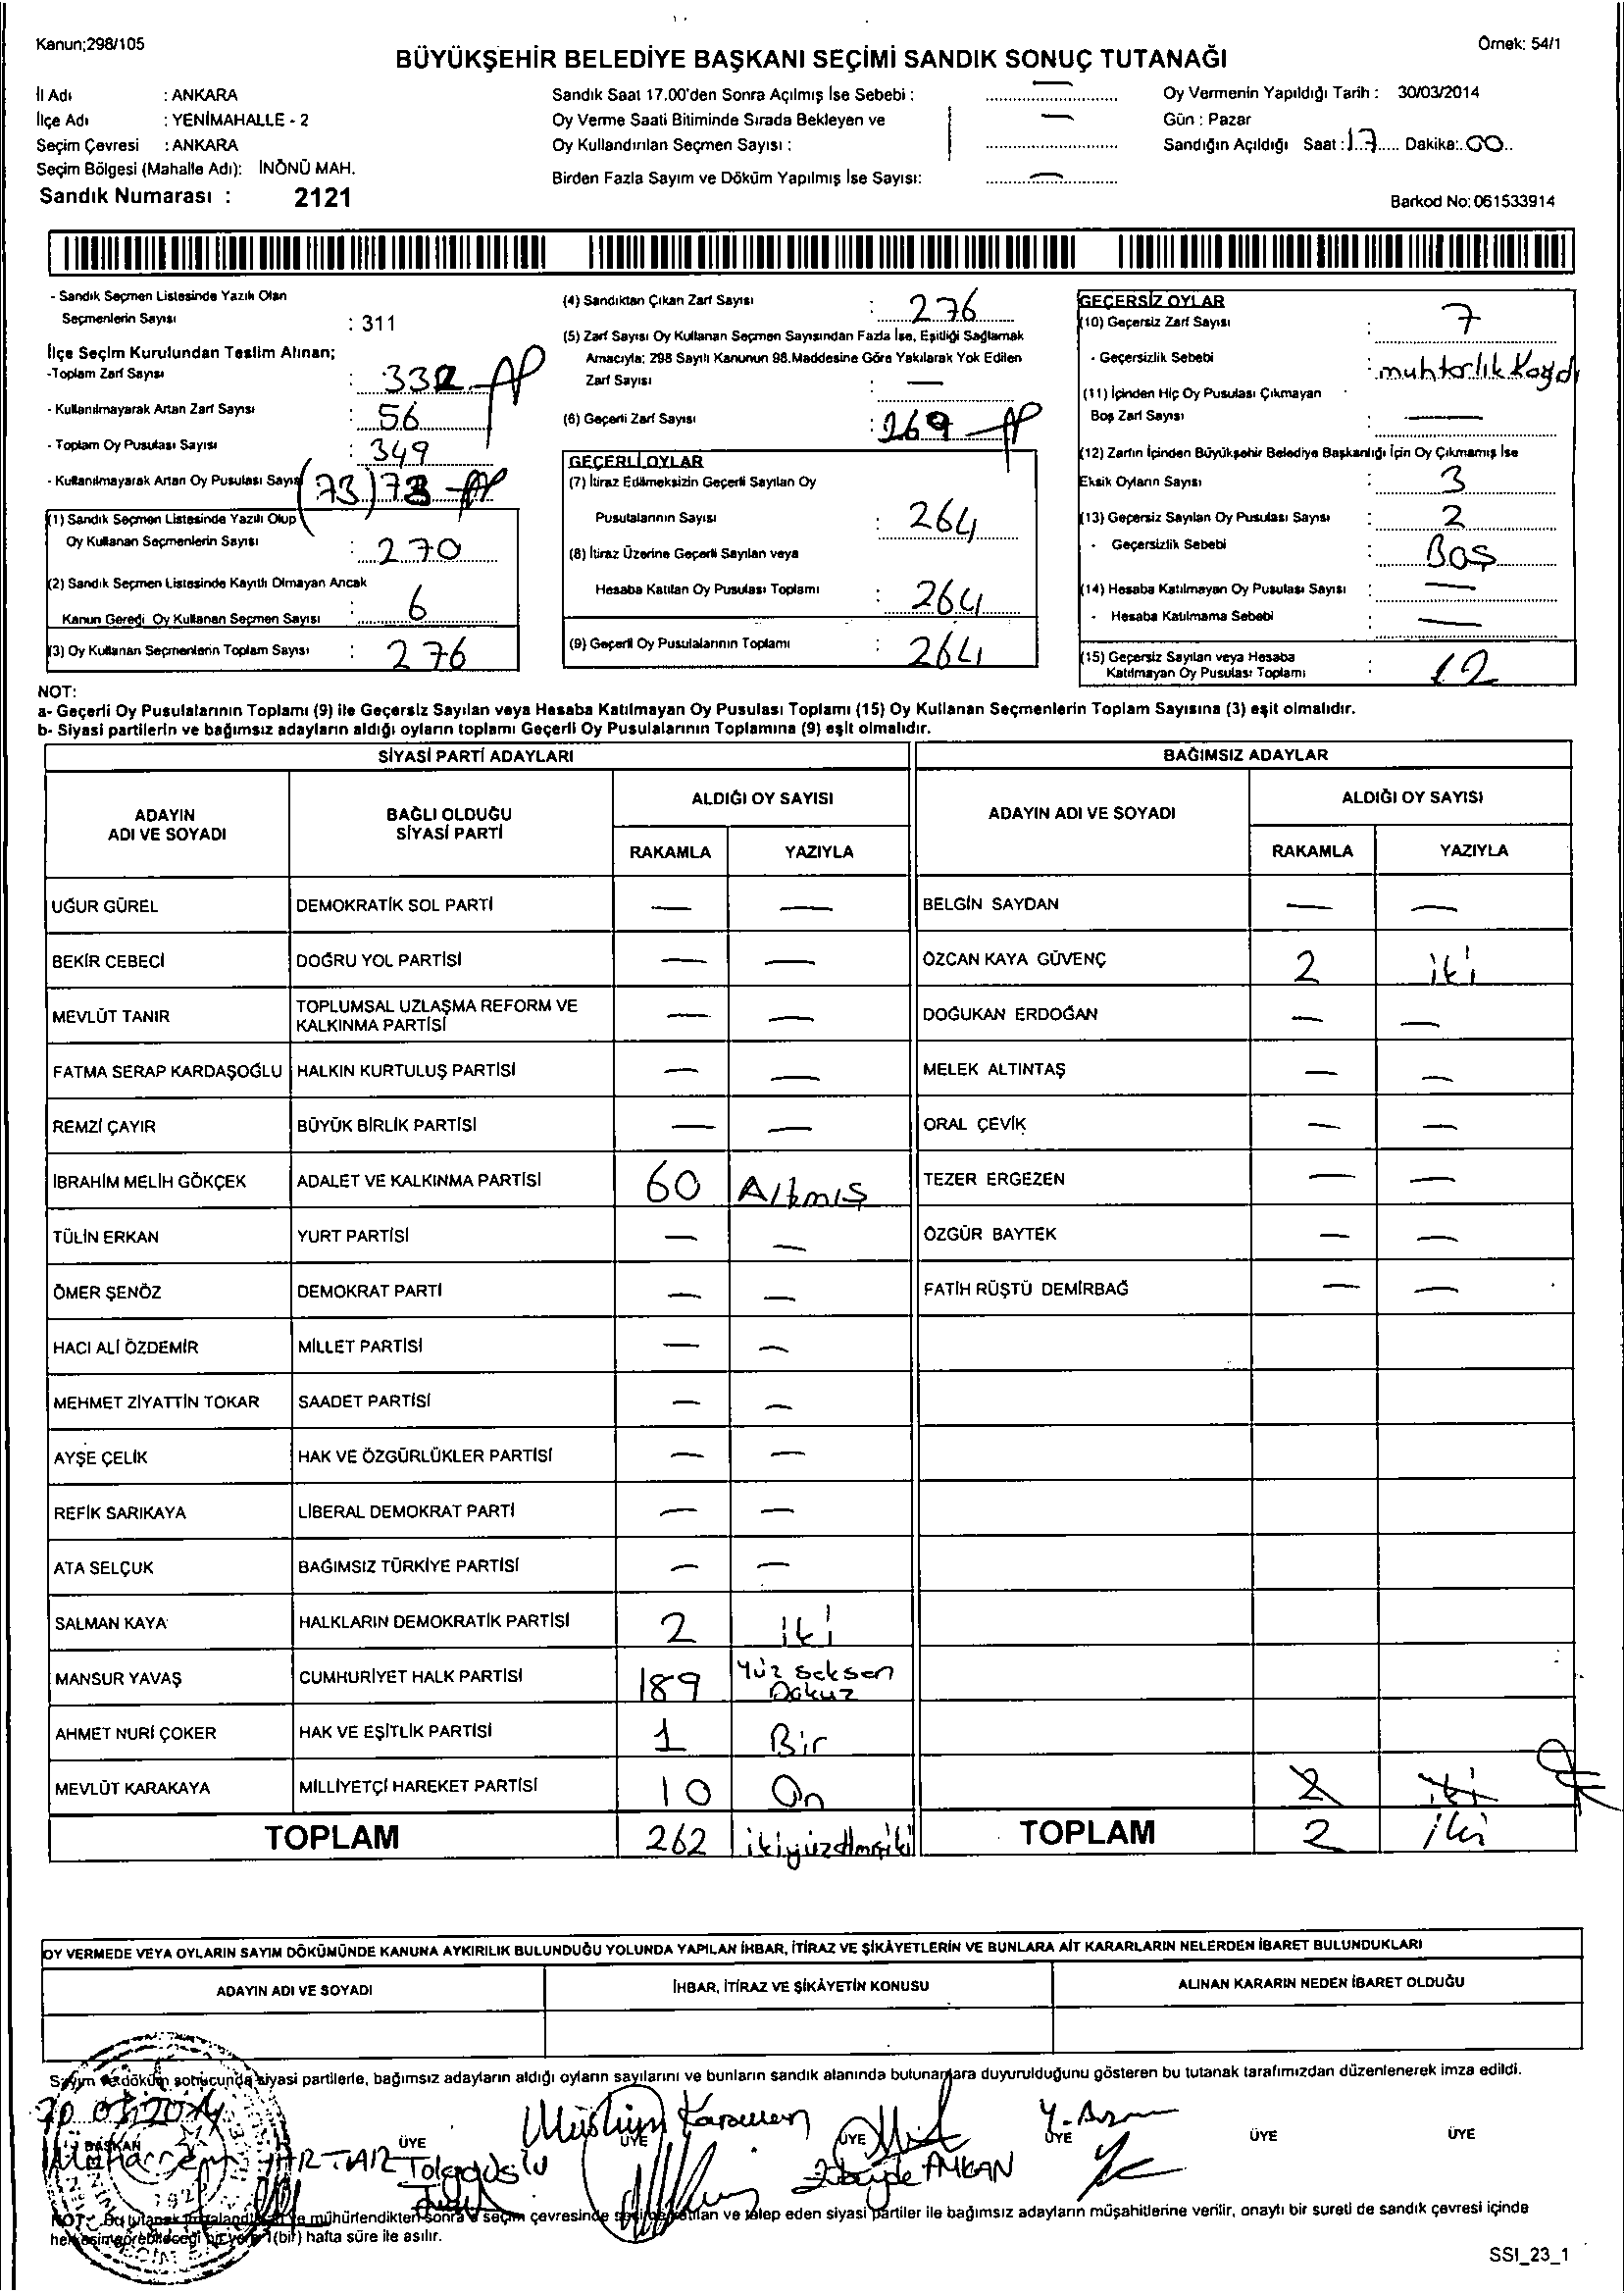 Kanun;298/105
Örnek: 54/1
BÜYÜKŞEHİR BELEDİYE BAŞKANI SEÇİMİ SANDIK SONUÇ TUTANAĞI
İl Adı : ANKARA
İlçe Adı : YENİMAHALLE - 2
Seçim Çevresi : ANKARA
Seçim Bölgesi (Mahalle Adı): İNÖNÜ MAH.
Sandık Numarası : 2121
Sandık Saat 17.00'den Sonra Açılmış İse Sebebi : —
Oy Verme Saati Bitiminde Sırada Bekleyen ve —
Oy Kullandırılan Seçmen Sayısı :
Birden Fazla Sayım ve Döküm Yapılmış İse Sayısı: —
Oy Vermenin Yapıldığı Tarih : 30/03/2014
Gün : Pazar
Sandığın Açıldığı Saat : 17 Dakika: 00
Barkod No: 061533914
- Sandık Seçmen Listesinde Yazılı Olan
Seçmenlerin Sayısı : 311
İlçe Seçim Kurulundan Teslim Alınan;
-Toplam Zarf Sayısı : 332
- Kullanılmayarak Artan Zarf Sayısı : 56
- Toplam Oy Pusulası Sayısı : 349
- Kullanılmayarak Artan Oy Pusulası Sayısı (73) 73
(1) Sandık Seçmen Listesinde Yazılı Olup
Oy Kullanan Seçmenlerin Sayısı : 270
(2) Sandık Seçmen Listesinde Kayıtlı Olmayan Ancak
Kanun Gereği Oy Kullanan Seçmen Sayısı : 6
(3) Oy Kullanan Seçmenlerin Toplam Sayısı : 276
(4) Sandıktan Çıkan Zarf Sayısı : 276
(5) Zarf Sayısı Oy Kullanan Seçmen Sayısından Fazla İse, Eşitliği Sağlamak
Amacıyla; 298 Sayılı Kanunun 98.Maddesine Göre Yakılarak Yok Edilen
Zarf Sayısı : —
(6) Geçerli Zarf Sayısı : 269
GEÇERLİ OYLAR
(7) İtiraz Edilmeksizin Geçerli Sayılan Oy
Pusulalarının Sayısı : 264
(8) İtiraz Üzerine Geçerli Sayılan veya
Hesaba Katılan Oy Pusulası Toplamı : 264
(9) Geçerli Oy Pusulalarının Toplamı : 264
GEÇERSİZ OYLAR
(10) Geçersiz Zarf Sayısı : 7
- Geçersizlik Sebebi : muhtarlık Kaydı
(11) İçinden Hiç Oy Pusulası Çıkmayan
Boş Zarf Sayısı : —
(12) Zarfın İçinden Büyükşehir Belediye Başkanlığı İçin Oy Çıkmamış İse
Eksik Oyların Sayısı : 3
(13) Geçersiz Sayılan Oy Pusulası Sayısı : 2
- Geçersizlik Sebebi : Boş
(14) Hesaba Katılmayan Oy Pusulası Sayısı : —
- Hesaba Katılmama Sebebi : —
(15) Geçersiz Sayılan veya Hesaba
Katılmayan Oy Pusulası Toplamı : 12
NOT:
a- Geçerli Oy Pusulalarının Toplamı (9) ile Geçersiz Sayılan veya Hesaba Katılmayan Oy Pusulası Toplamı (15) Oy Kullanan Seçmenlerin Toplam Sayısına (3) eşit olmalıdır.
b- Siyasi partilerin ve bağımsız adayların aldığı oyların toplamı Geçerli Oy Pusulalarının Toplamına (9) eşit olmalıdır.
SİYASİ PARTİ ADAYLARI
BAĞIMSIZ ADAYLAR
ADAYIN ADI VE SOYADI
BAĞLI OLDUĞU SİYASİ PARTİ
ALDIĞI OY SAYISI
RAKAMLA YAZIYLA
ADAYIN ADI VE SOYADI
ALDIĞI OY SAYISI
RAKAMLA YAZIYLA
UĞUR GÜREL DEMOKRATİK SOL PARTİ — — BELGİN SAYDAN — —
BEKİR CEBECİ DOĞRU YOL PARTİSİ — — ÖZCAN KAYA GÜVENÇ 2 iki
MEVLÜT TANIR TOPLUMSAL UZLAŞMA REFORM VE KALKINMA PARTİSİ — — DOĞUKAN ERDOĞAN — —
FATMA SERAP KARDAŞOĞLU HALKIN KURTULUŞ PARTİSİ — — MELEK ALTINTAŞ — —
REMZİ ÇAYIR BÜYÜK BİRLİK PARTİSİ — — ORAL ÇEVİK — —
İBRAHİM MELİH GÖKÇEK ADALET VE KALKINMA PARTİSİ 60 Altmış TEZER ERGEZEN — —
TÜLİN ERKAN YURT PARTİSİ — — ÖZGÜR BAYTEK — —
ÖMER ŞENÖZ DEMOKRAT PARTİ — — FATİH RÜŞTÜ DEMİRBAĞ — —
HACI ALİ ÖZDEMİR MİLLET PARTİSİ — —
MEHMET ZİYATTİN TOKAR SAADET PARTİSİ — —
AYŞE ÇELİK HAK VE ÖZGÜRLÜKLER PARTİSİ — —
REFİK SARIKAYA LİBERAL DEMOKRAT PARTİ — —
ATA SELÇUK BAĞIMSIZ TÜRKİYE PARTİSİ — —
SALMAN KAYA HALKLARIN DEMOKRATİK PARTİSİ 2 iki
MANSUR YAVAŞ CUMHURİYET HALK PARTİSİ 189 Yüz seksen Dokuz
AHMET NURİ ÇOKER HAK VE EŞİTLİK PARTİSİ 1 Bir
MEVLÜT KARAKAYA MİLLİYETÇİ HAREKET PARTİSİ 10 On 2 iki
TOPLAM 262 ikiyüzatmışiki TOPLAM 2 iki
OY VERMEDE VEYA OYLARIN SAYIM DÖKÜMÜNDE KANUNA AYKIRILIK BULUNDUĞU YOLUNDA YAPILAN İHBAR, İTİRAZ VE ŞİKÂYETLERİN VE BUNLARA AİT KARARLARIN NELERDEN İBARET BULUNDUKLARI
ADAYIN ADI VE SOYADI İHBAR, İTİRAZ VE ŞİKÂYETİN KONUSU ALINAN KARARIN NEDEN İBARET OLDUĞU
Sayım ve döküm sonucunda siyasi partilerle, bağımsız adayların aldığı oyların sayılarını ve bunların sandık alanında bulunanlara duyurulduğunu gösteren bu tutanak tarafımızdan düzenlenerek imza edildi.
BAŞKAN ÜYE ÜYE ÜYE ÜYE ÜYE ÜYE
Muharrem
NOT: Bu tutanak ve mühürlendikten sonra seçim çevresinde seçime katılan ve talep eden siyasi partiler ile bağımsız adayların müşahitlerine verilir, onaylı bir sureti de sandık çevresi içinde
herkesin görebileceği bir yere 1(bir) hafta süre ile asılır.
SSI_23_1